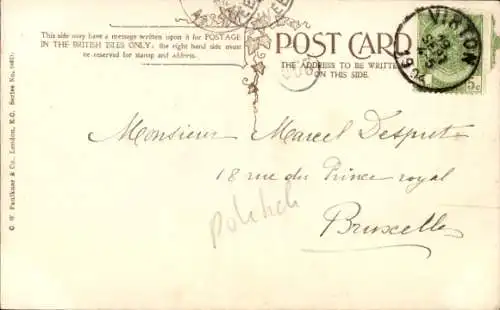 This side may have a message written upon it for POSTAGE
IN THE BRITISH ISLES ONLY: the right hand side must
be reserved for stamp and address.
POST CARD
THE ADDRESS TO BE WRITTEN
ON THIS SIDE.
VIRTON
5c
C. W. Faulkner & Co., London, E.C. Series No.
Monsieur Marcel Despret
18 rue du Prince royal
Bruxelles